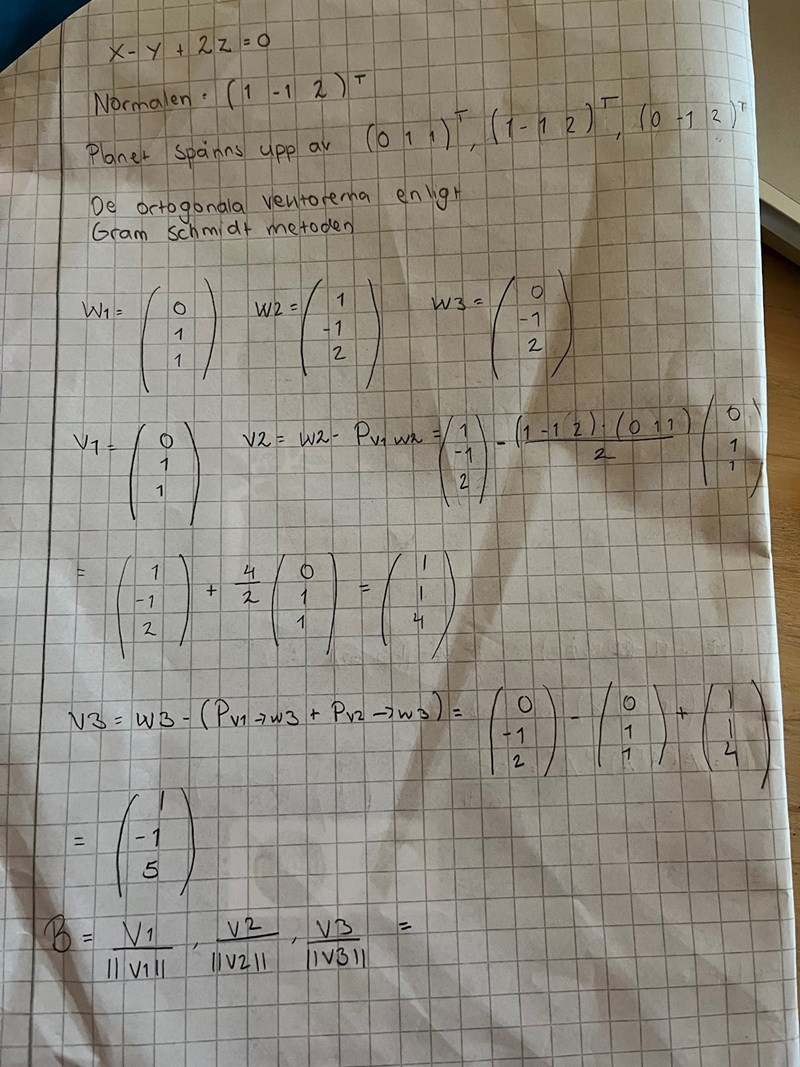 x - y + 2z = 0
Normalen · (1 -1 2)^T
Planet spänns upp av (0 1 1)^T, (1 -1 2)^T, (0 -1 2)^T
De ortogonala vektorerna enligt
Gram schmidt metoden
W1 = (0 1 1) W2 = (1 -1 2) W3 = (0 -1 2)
V1 = (0 1 1) V2 = W2 - Pv1 w2 = (1 -1 2) - (1 -1 2)·(0 1 1)/2 (0 1 1)
= (1 -1 2) + 4/2 (0 1 1) = (1 1 4)
V3 = W3 - (Pv1→w3 + Pv2→w3) = (0 -1 2) - (0 1 1) + (1 1 4)
= (1 -1 5)
B = V1/||V1||, V2/||V2||, V3/||V3|| =